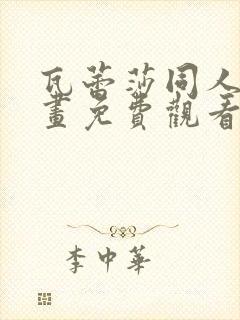 瓦蕾莎同人
畫免費觀看
李中華